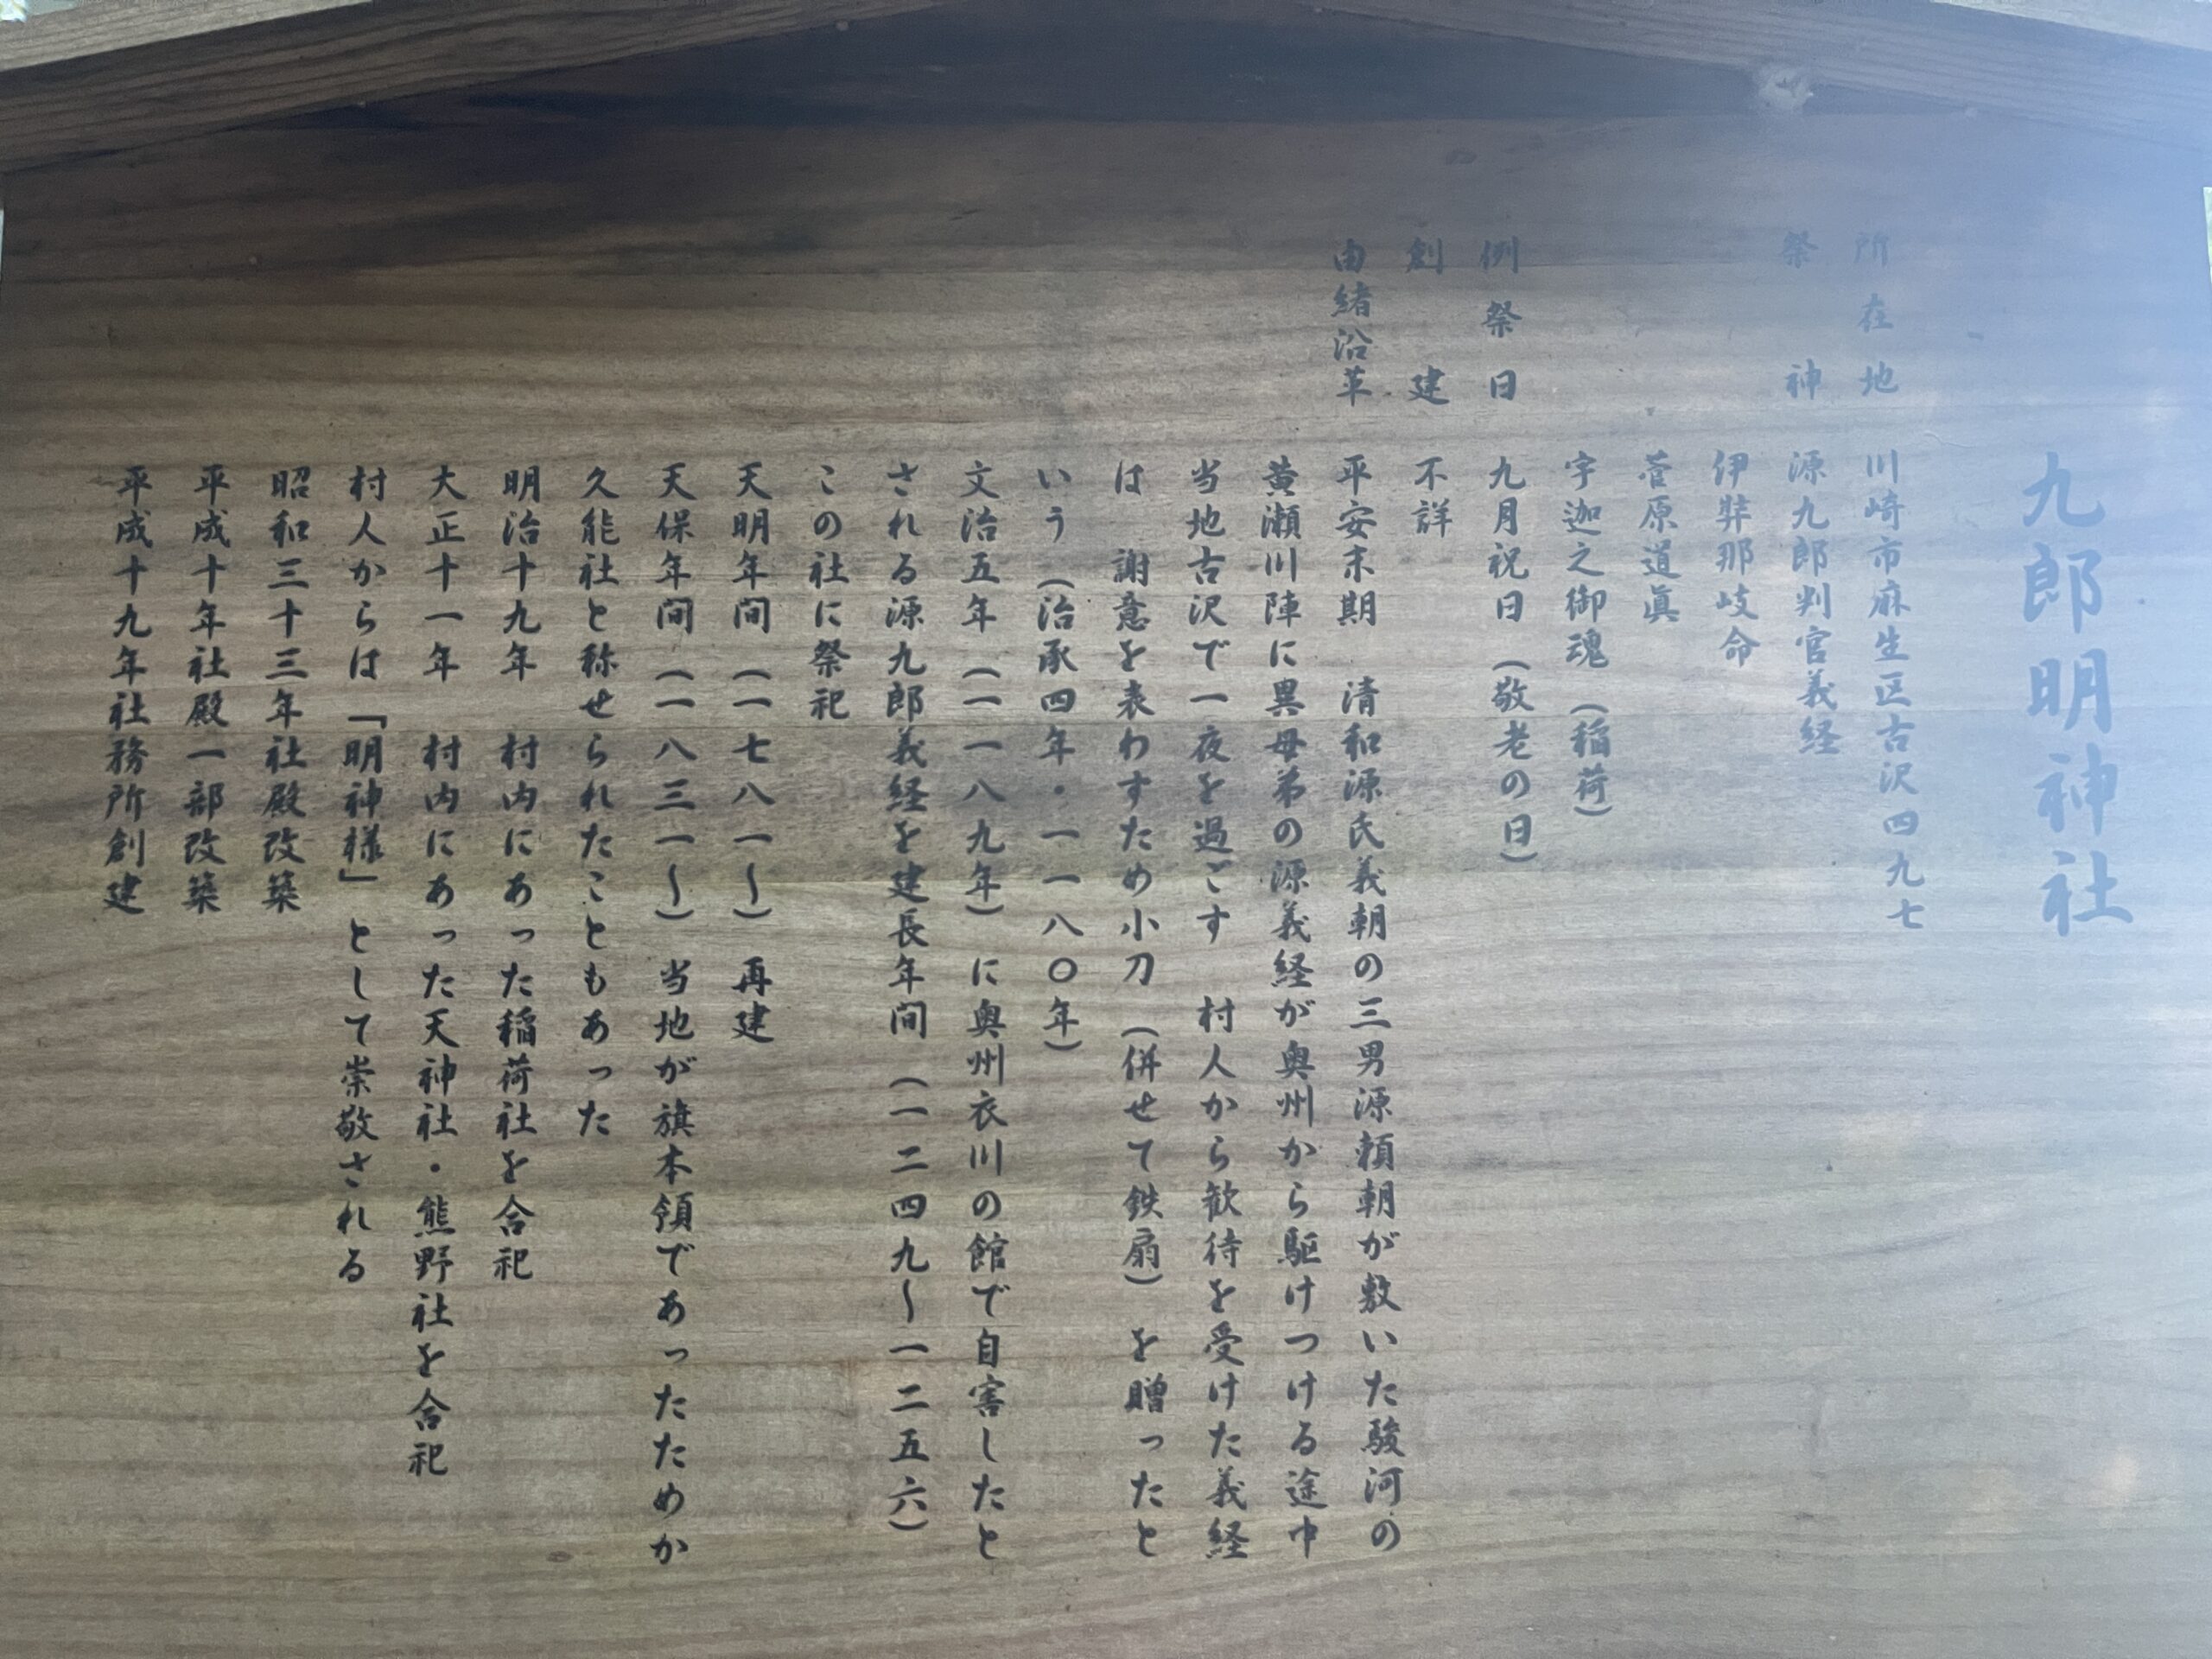 九郎明神社
所在地 川崎市麻生区古沢四九七
祭神 源九郎判官義経
伊弉那岐命
菅原道眞
宇迦之御魂（稲荷）
例祭日 九月祝日（敬老の日）
創建 不詳
由緒沿革 平安末期 清和源氏義朝の三男源頼朝が敷いた駿河の
黄瀬川陣に異母弟の源義経が奥州から駆けつける途中
当地古沢で一夜を過ごす 村人から歓待を受けた義経
は 謝意を表わすため小刀（併せて鉄扇）を贈ったと
いう（治承四年・一一八〇年）
文治五年（一一八九年）に奥州衣川の館で自害したと
される源九郎義経を建長年間（一二四九〜一二五六）
この社に祭祀
天明年間（一七八一〜）再建
天保年間（一八三一〜）当地が旗本領であったためか
久能社と称せられたこともあった
明治十九年 村内にあった稲荷社を合祀
大正十一年 村内にあった天神社・熊野社を合祀
村人からは「明神様」として崇敬される
昭和三十三年社殿改築
平成十年社殿一部改築
平成十九年社務所創建